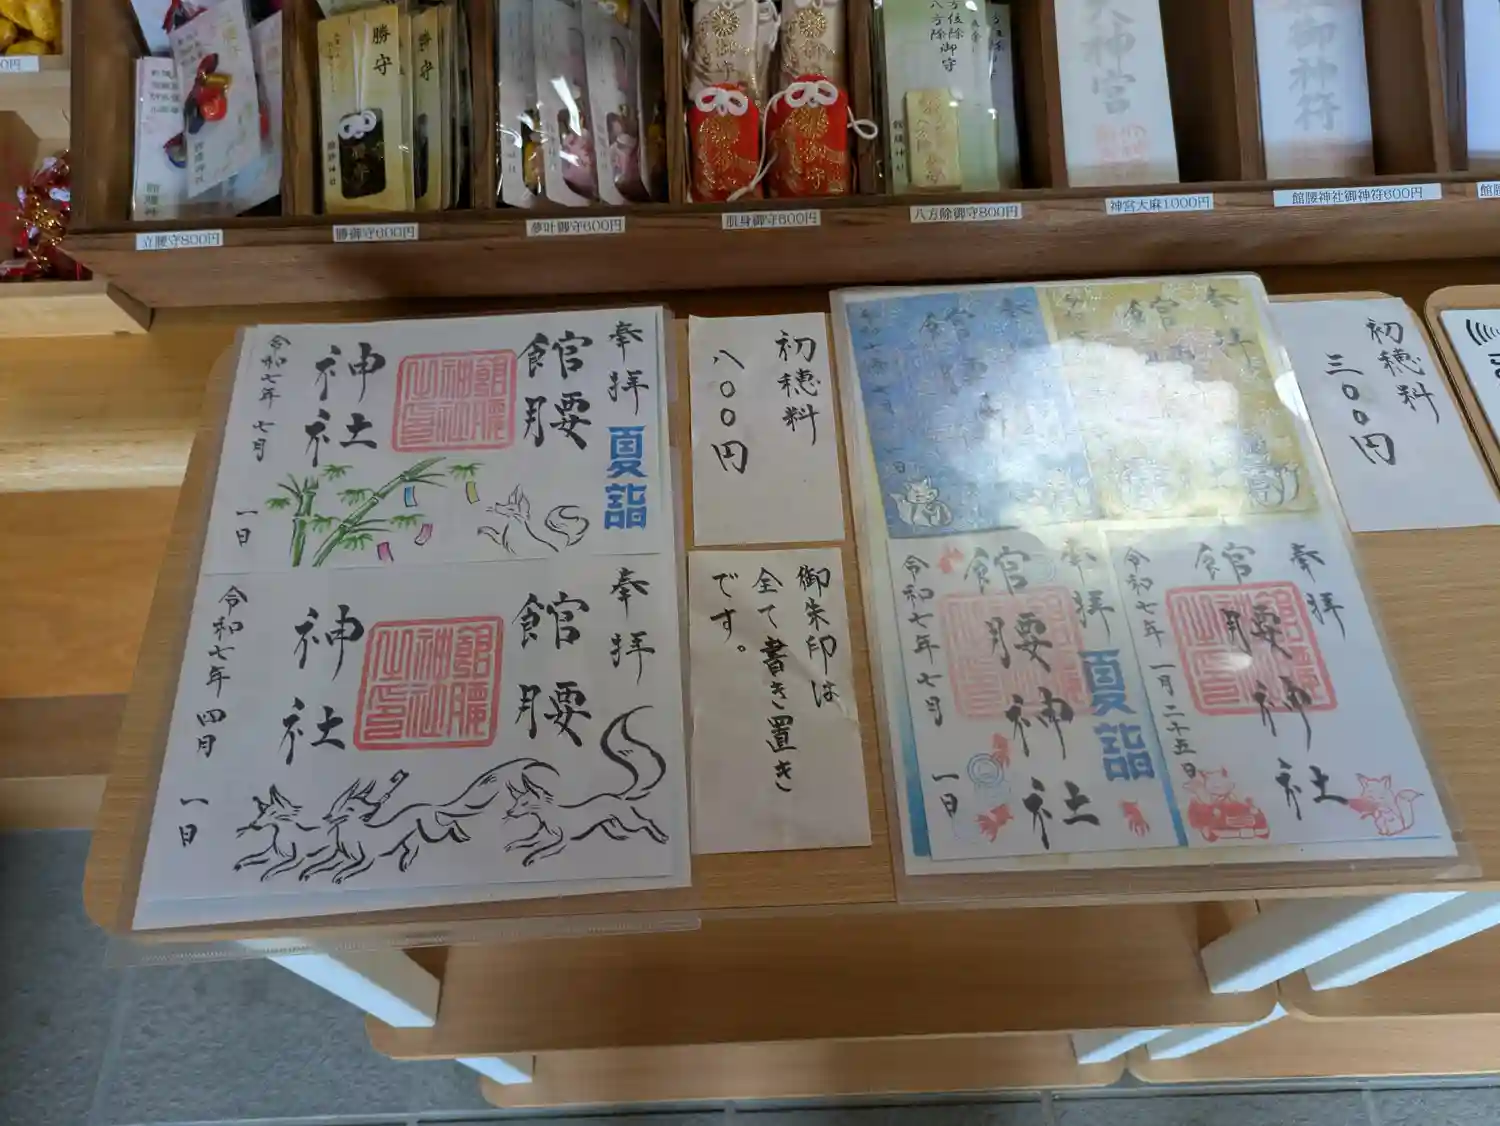 勝守
御守
御守
八方除
方位除御守
大神宮
御神符
立腰守800円
勝御守600円
夢叶御守600円
肌身御守600円
八方除御守800円
神宮大麻1000円
館腰神社御神符600円
奉拝
夏詣
館腰
神社
令和七年七月
一日
奉拝
館腰
神社
令和七年四月
一日
初穂料
八〇〇円
御朱印は
全て書き置き
です。
奉拝
館
奉拝
館腰神社
夏詣
令和七年七月
一日
奉拝
館腰神社
令和七年一月二十五日
初穂料
三〇〇円